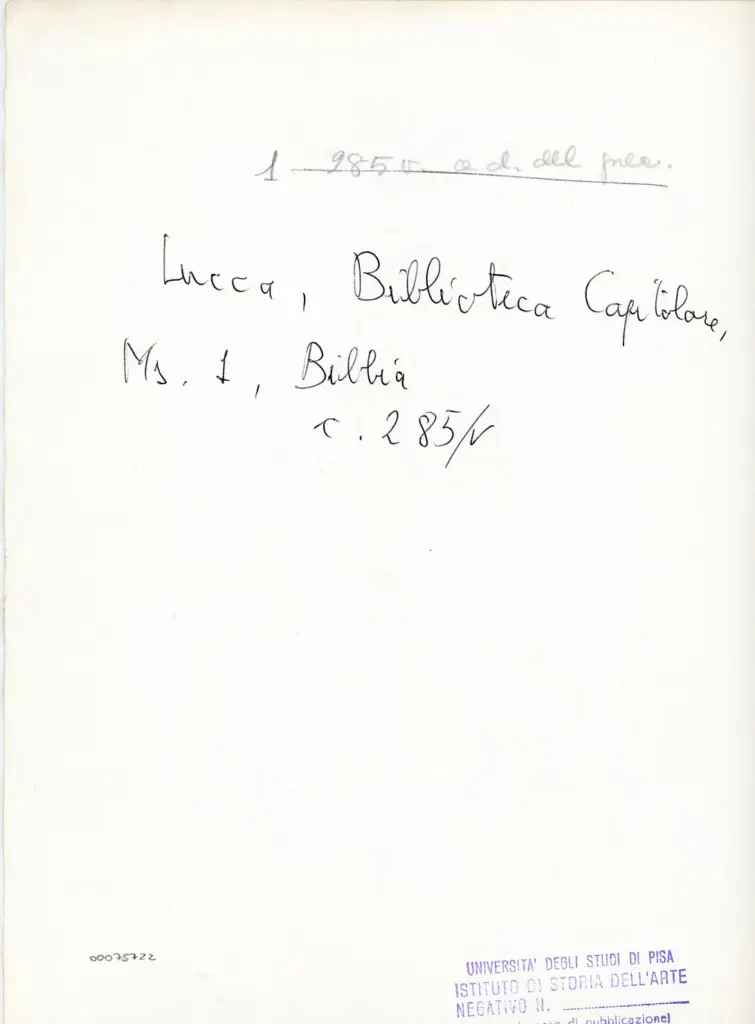 1 285 v. a d. del prec.
Lucca, Biblioteca Capitolare,
Ms. 1, Bibbia
c. 285/v
00075722
UNIVERSITA' DEGLI STUDI DI PISA
ISTITUTO DI STORIA DELL'ARTE
NEGATIVO N.
di pubblicazione)